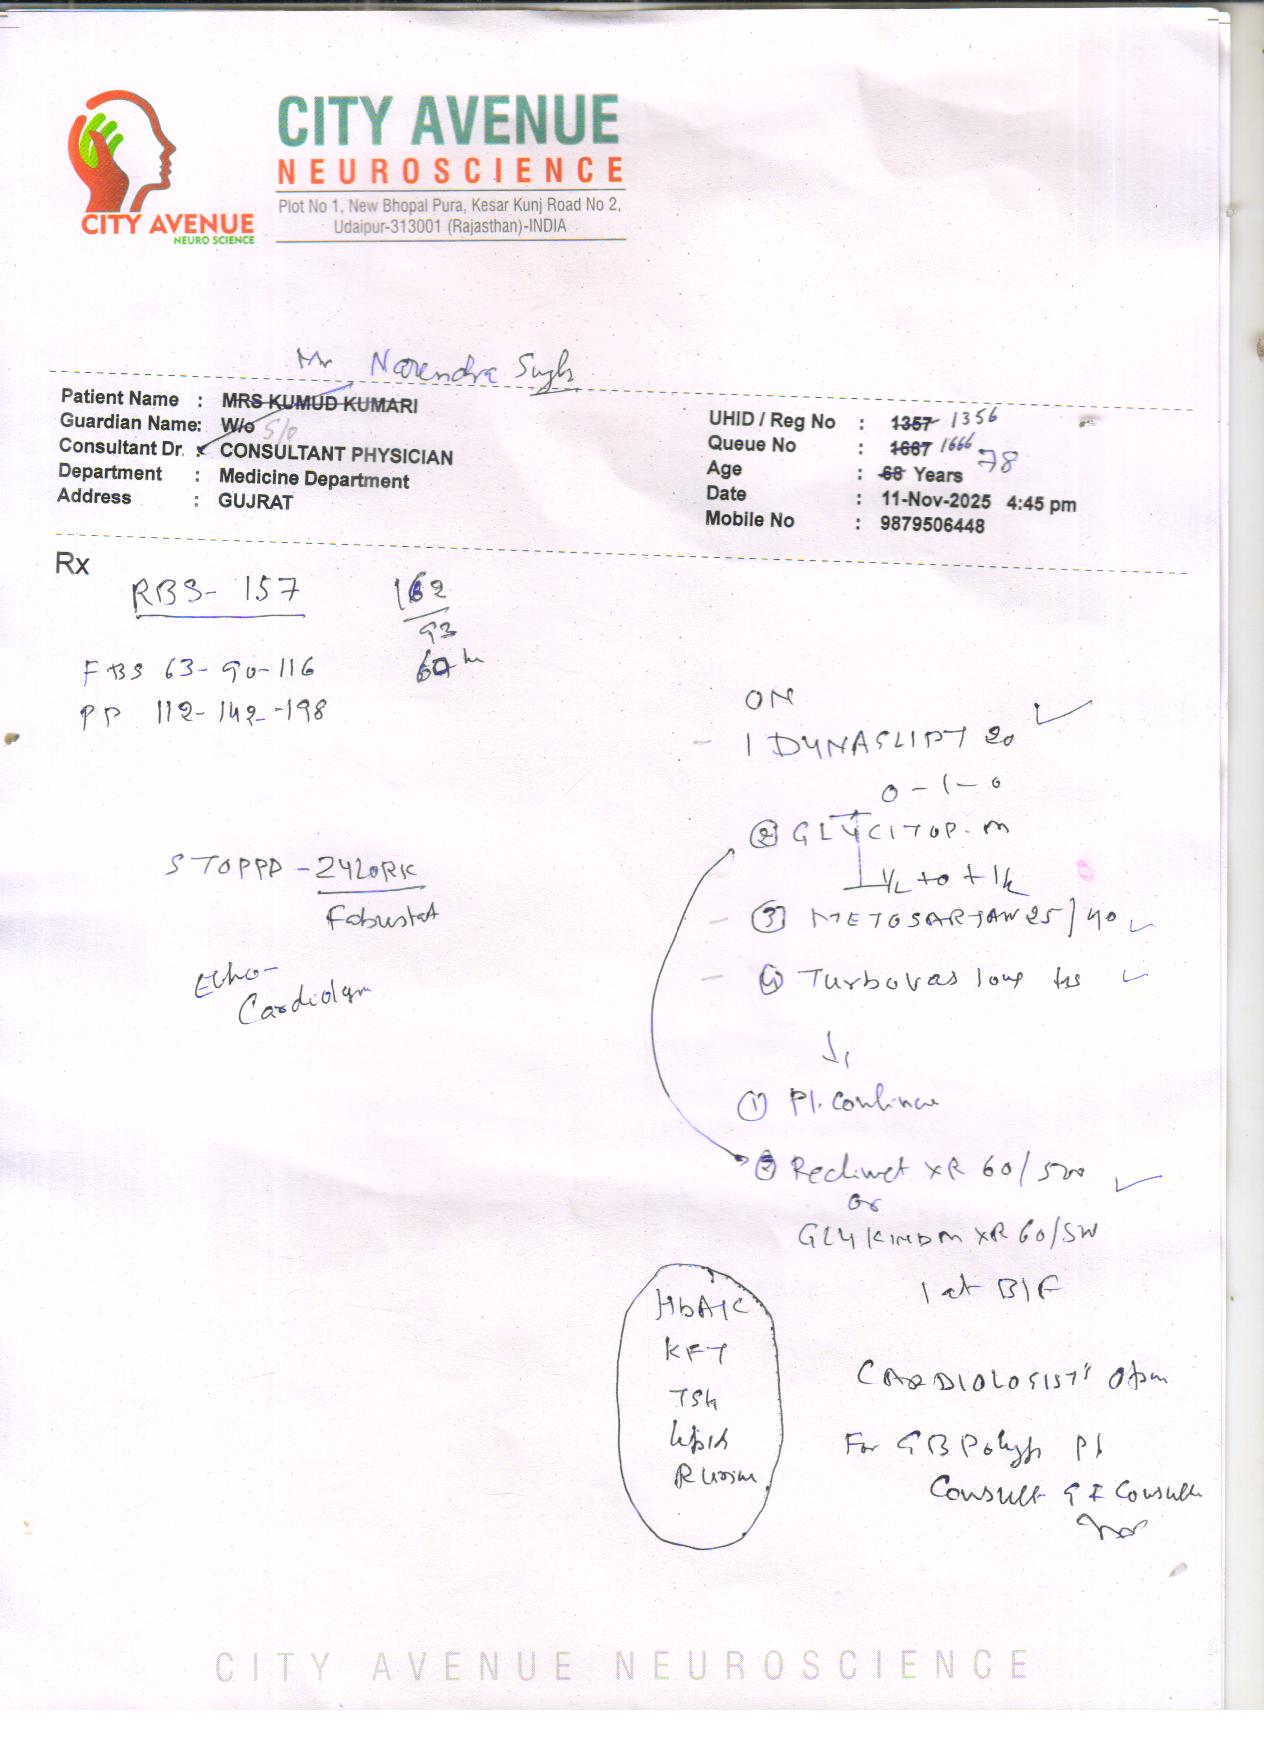 CITY AVENUE
NEURO SCIENCE
CITY AVENUE
NEUROSCIENCE
Plot No 1, New Bhopal Pura, Kesar Kunj Road No 2,
Udaipur-313001 (Rajasthan)-INDIA
Mr Narendra Singh
Patient Name : MRS KUMUD KUMARI
Guardian Name: W/o S/o
Consultant Dr. : CONSULTANT PHYSICIAN
Department : Medicine Department
Address : GUJRAT
UHID / Reg No : 1357 1356
Queue No : 1667 1666
Age : 68 Years 78
Date : 11-Nov-2025 4:45 pm
Mobile No : 9879506448
Rx
RBS- 157
162
93
FBS 63-90-116
PP 112-142-198
ON
1 DYNAGLIPT 20
0-1-0
② GLYCITOP-M
③ METOSARTAN 25/40
④ Turbovas long
STOPPD - ZYLORIC
Febustat
Echo-
① Pl. Continue
② Reclimet XR 60/500
or
GLYKIND M XR 60/500
1 at B/F
HbA1C
KFT
TSH
Lipid
R Urine
CARDIOLOGIST'S
For GB Polyp Pl
Consult
CITY AVENUE NEUROSCIENCE